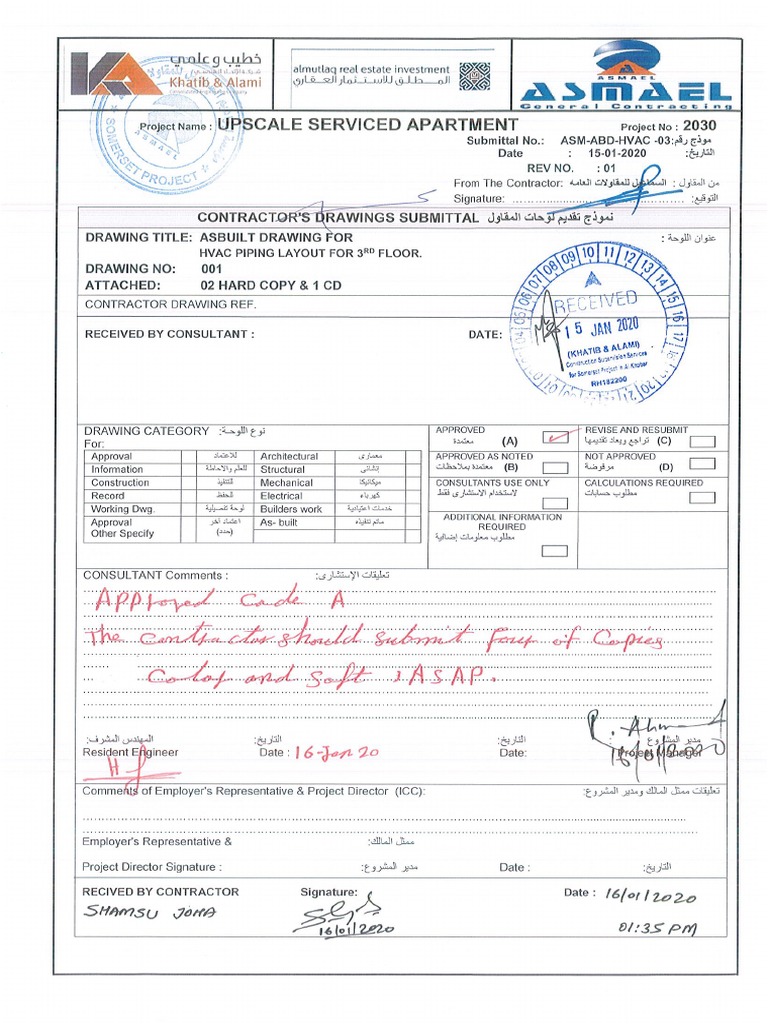 خطيب وعلمي
Khatib & Alami
almutlaq real estate investment
المـطـلـق للاستثمار العقاري
ASMAEL
ASMAEL
General Contracting
SOMERSET PROJECT
ASMAEL
Project Name : UPSCALE SERVICED APARTMENT
Project No : 2030
Submittal No.: ASM-ABD-HVAC -03:نموذج رقم
Date : 15-01-2020 التاريخ:
REV NO. : 01
From The Contractor: للمقاولات العامه من المقاول :
Signature: التوقيع:
CONTRACTOR'S DRAWINGS SUBMITTAL نموذج تقديم لوحات المقاول
DRAWING TITLE: ASBUILT DRAWING FOR عنوان اللوحة :
HVAC PIPING LAYOUT FOR 3RD FLOOR.
DRAWING NO: 001
ATTACHED: 02 HARD COPY & 1 CD
CONTRACTOR DRAWING REF.
RECEIVED BY CONSULTANT :
DATE:
04 05 06 07 08 09 10 11 12 13 14 15 16 17
RECEIVED
15 JAN 2020
(KHATIB & ALAMI)
Construction Supervision Services
for Somerset Project in Al Khobar
RH182200
DRAWING CATEGORY نوع اللوحة:
For:
Approval للاعتماد Architectural معماري
Information للعلم والاحاطة Structural إنشائي
Construction للتنفيذ Mechanical ميكانيكا
Record للحفظ Electrical كهرباء
Working Dwg. لوحة تفصيلية Builders work خدمات اعتيادية
Approval اعتماد آخر As- built ماتم تنفيذه
Other Specify (حدد)
APPROVED
معتمدة (A)
REVISE AND RESUBMIT
تراجع ويعاد تقديمها (C)
APPROVED AS NOTED
معتمدة بملاحظات (B)
NOT APPROVED
مرفوضة (D)
CONSULTANTS USE ONLY
لاستخدام الاستشارى فقط
CALCULATIONS REQUIRED
مطلوب حسابات
ADDITIONAL INFORMATION
REQUIRED
مطلوب معلومات إضافية
CONSULTANT Comments : تعليقات الإستشارى:
Approved Code A
The contractor should submit four of Copies
Color and Soft , ASAP.
المهندس المشرف: التاريخ: التاريخ: مدير المشروع
Resident Engineer Date : 16-Jan 20 Date: Project Manager
16/01/2020
Comments of Employer's Representative & Project Director (ICC): تعليقات ممثل المالك ومدير المشروع:
Employer's Representative & ممثل المالك:
Project Director Signature : مدير المشروع: Date : التاريخ:
RECIVED BY CONTRACTOR Signature: Date : 16/01/2020
SHAMSU JOHA
16/01/2020
01:35 PM